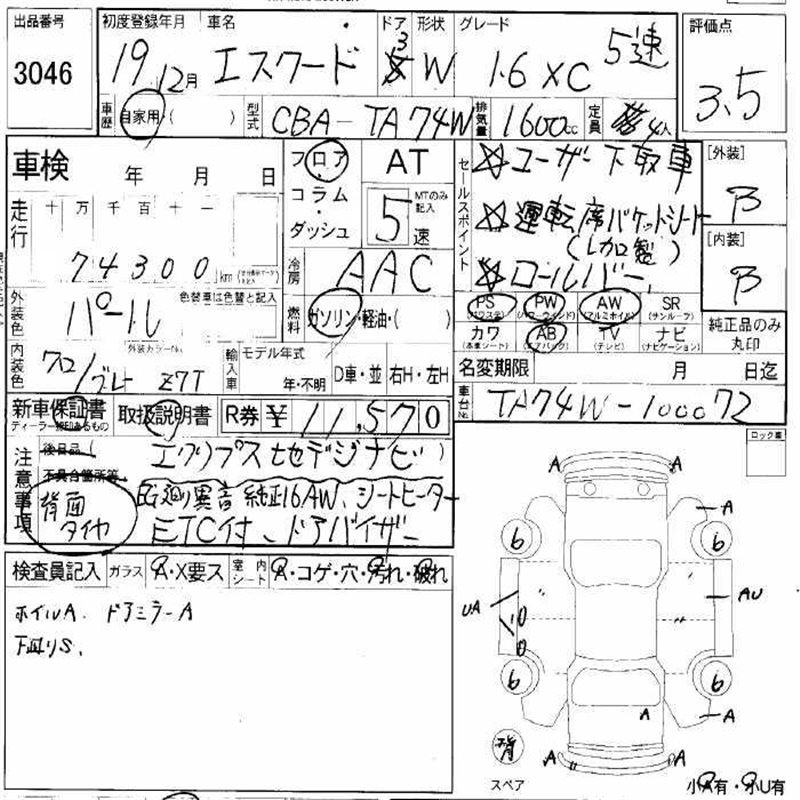 出品番号 初度登録年月 車名 ドア 形状 グレード 評価点
3046 19 12月 エスクード 3 W 1.6 XC 5速 3.5
車歴 自家用・( ) 型式 CBA-TA74W 排気量 1600cc 定員 4人
車検 年 月 日 フロア AT セールスポイント ☆ユーザー下取車 [外装]
走行 十 万 千 百 十 一 コラム・ダッシュ 5速 MTのみ記入 ☆運転席バケットシート B
(レカロ製) [内装]
74300 km 冷房 AAC ☆ロールバー、 B
外装色 パール 色替車は色替と記入 燃料 ガソリン・軽油・( ) PS (パワステ) PW (パワーウィンド) AW (アルミホイル) SR (サンルーフ)
外装カラーNo. カワ (本革シート) AB (エアバック) TV (テレビ) ナビ (ナビゲーション) 純正品のみ丸印
内装色 クロ/グレー Z7T 輸入車 モデル年式 年・不明 D車・並 右H・左H 名変期限 月 日迄
新車保証書 取扱説明書 R券 ¥ 11,570 車台No. TA74W-100072
ディーラー捺印あるもの ロック車
注意事項 後日品( エクリプス地デジナビ )
不具合箇所等、 異音 純正16AW、シートヒーター
背面タイヤ ETC付、ドアバイザー
検査員記入 ガラス A・X要ス 室内シート A・コゲ・穴・汚れ・破れ
ホイルA. ドアミラーA
下廻りS.
A A
A
6 6
UA AU
6 6
A A
背 A A
スペア 小A有・小U有